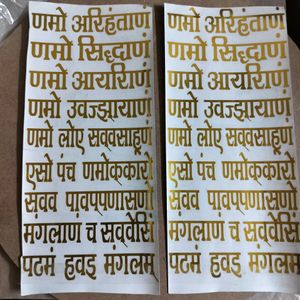 णमो अरिहंताणं
णमो सिद्धाणं
णमो आयरिणं
णमो उवज्झायाणं
णमो लोए सववसाहूणं
एसो पंच णमोककारो
सवव पावपपणासणो
मगलाण च सववेसिं
पटमं हवइ मगलम
णमो अरिहंताणं
णमो सिद्धाणं
णमो आयरिणं
णमो उवज्झायाणं
णमो लोए सववसाहूणं
एसो पंच णमोककारो
सवव पावपपणासणो
मगलाण च सववेसिं
पटमं हवइ मगलम